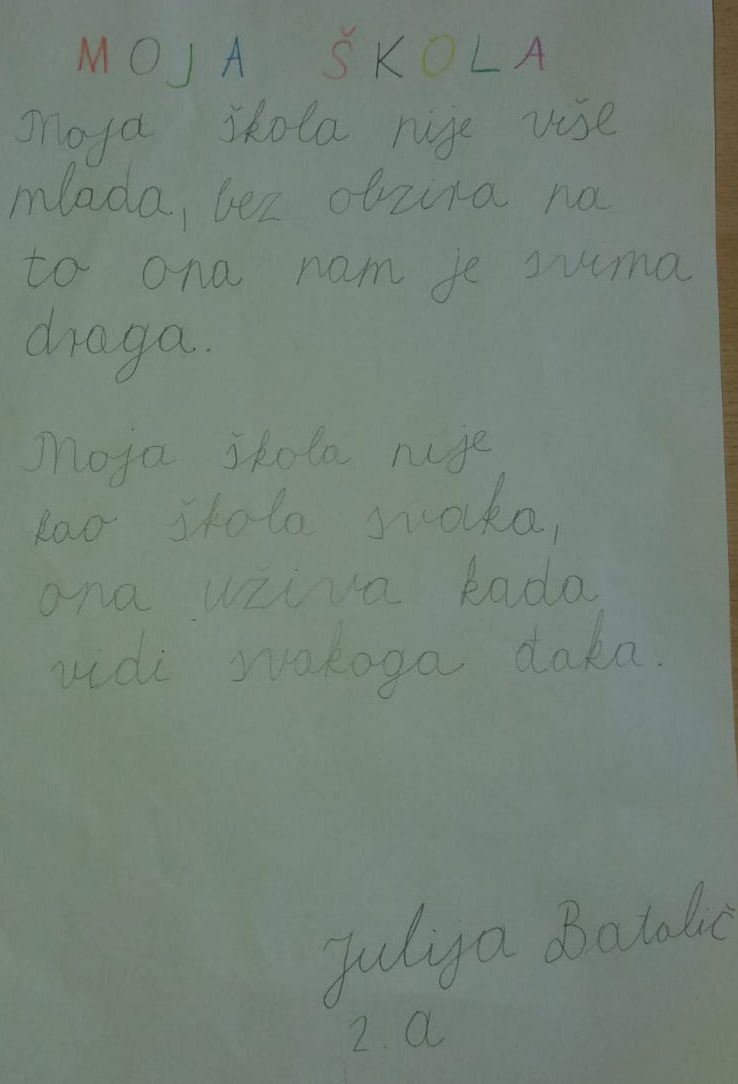 MOJA ŠKOLA
Moja škola nije više
mlada, bez obzira na
to ona nam je svima
draga.
Moja škola nije
kao škola svaka,
ona uživa kada
vidi svakoga đaka.
Julija Batalić
2. a